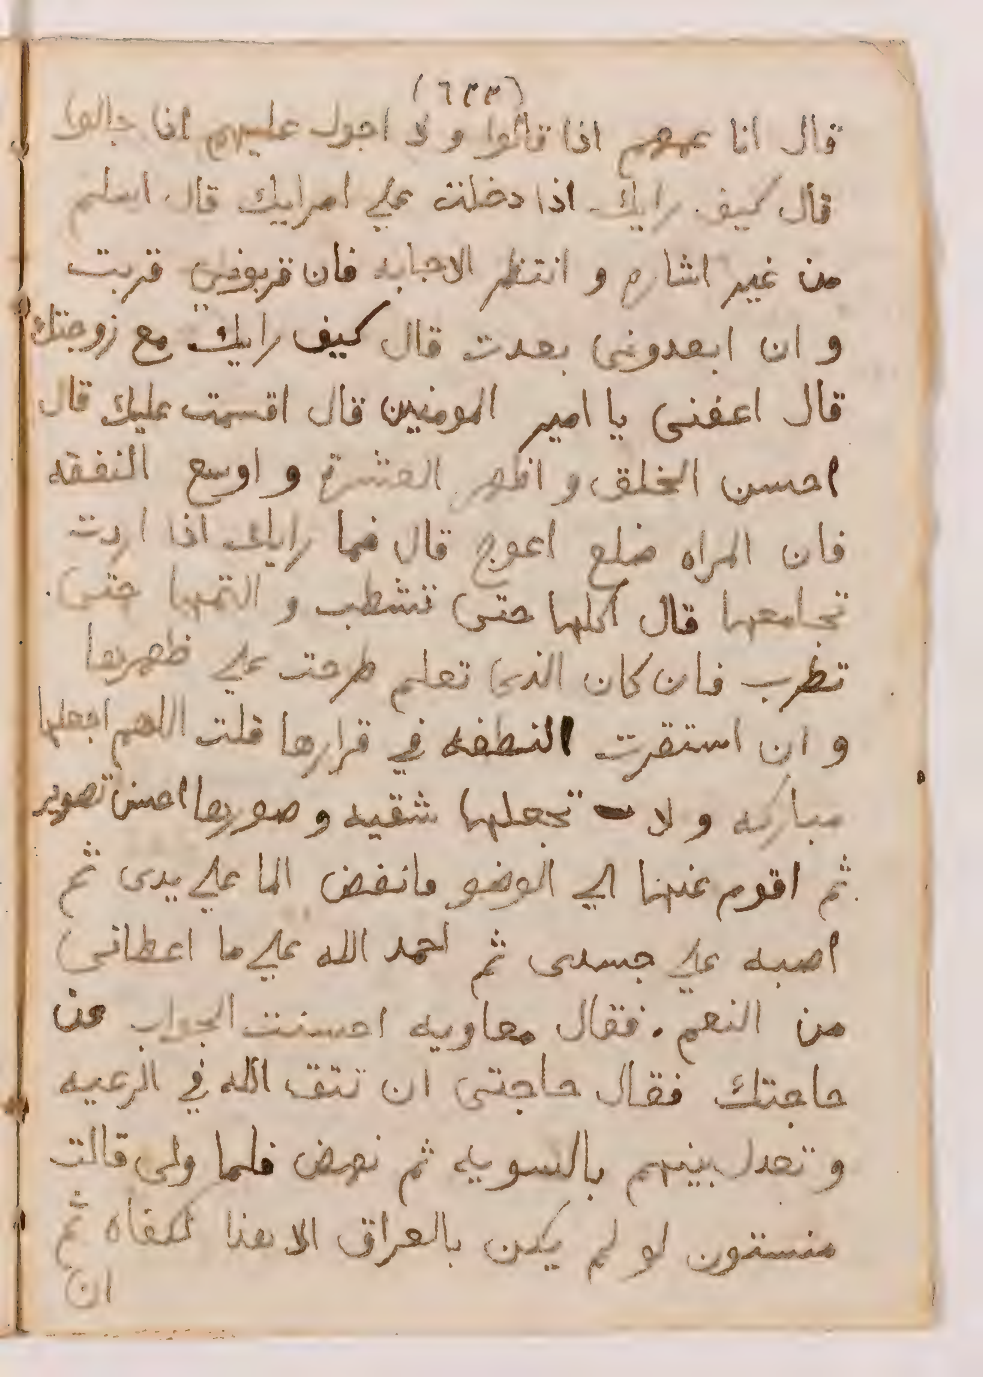 (٦٣٣)
قال انا عمهم اذا قالوا و لا اجول عليهم اذا جالوا
قال كيف رايك اذا دخلت علي امرايك قال اسلم
من غير اشاره و انتظر الاجابه فان قربونى قربت
و ان ابعدونى بعدت قال كيف رايك مع زوجتك
قال اعفنى يا امير المومنين قال اقسمت عليك قال
احسن الخلق و اظهر العشرة و اوسع النفقه
فان المراه ضلع اعوج قال فما رايك اذا اردت
تجامعها قال اكلها حتى تنشطب و التمها حتى
تطرب فان كان الذى تعلم طرحت علي ظهرها
و ان استقرت النطفه في قرارها قلت اللهم اجعلها
مباركه و لا تجعلها شقيه و صورها احسن تصوير
ثم اقوم عنها الي الوضو فانفض الما علي يدى ثم
اصبه علي جسدى ثم احمد الله علي ما اعطانى
من النعم . فقال معاويه احسنت الجواب عن
حاجتك فقال حاجتى ان تتق الله في الرعيه
و تعدل بينهم بالسويه ثم نهض فلما ولى قالت
منستون لو لم يكن بالعراق الا هذا لكفاه ثم
ان